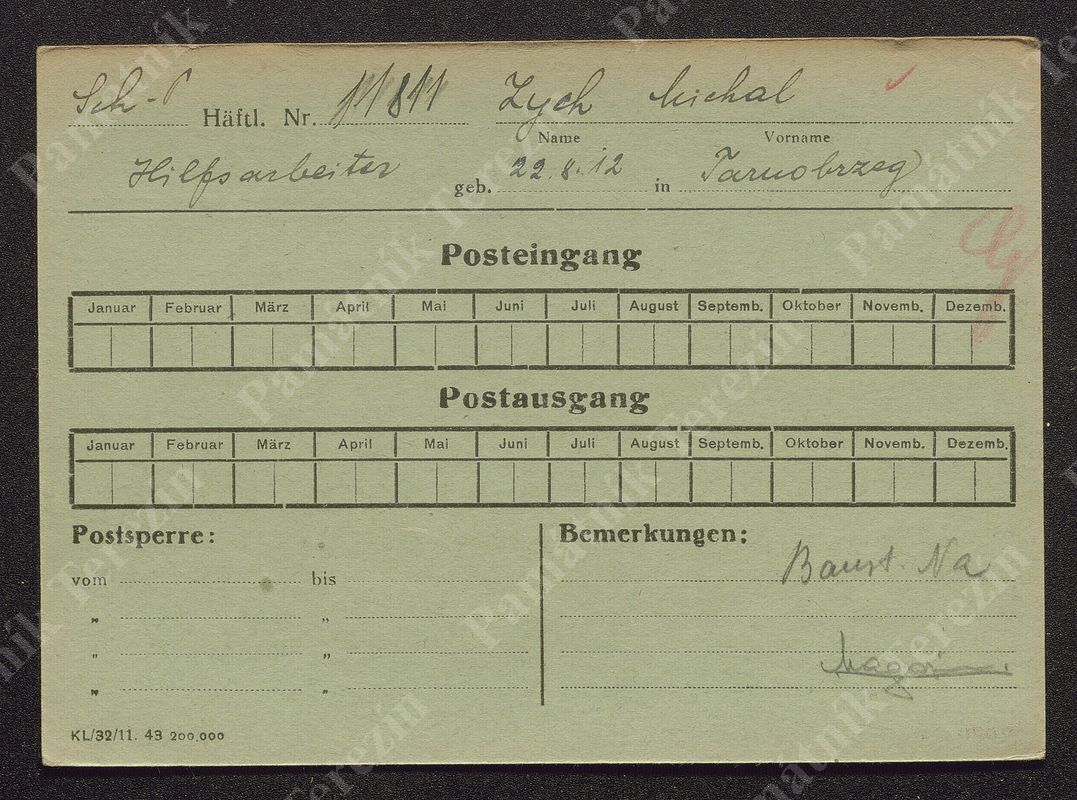 Sch-P Häftl. Nr. 11811 Zych Michal
Name Vorname
Hilfsarbeiter geb. 22.8.12 in Tarnobrzeg
Posteingang
Januar Februar März April Mai Juni Juli August Septemb. Oktober Novemb. Dezemb.
Postausgang
Januar Februar März April Mai Juni Juli August Septemb. Oktober Novemb. Dezemb.
Postsperre: Bemerkungen:
vom bis Baust. Na
„ „
„ „
„ „
KL/32/11. 43 200.000
Památník Terezín